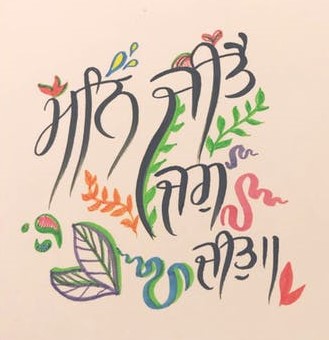 ਮਨਿ ਜੀਤੈ
ਜਗੁ
ਜੀਤੁ॥